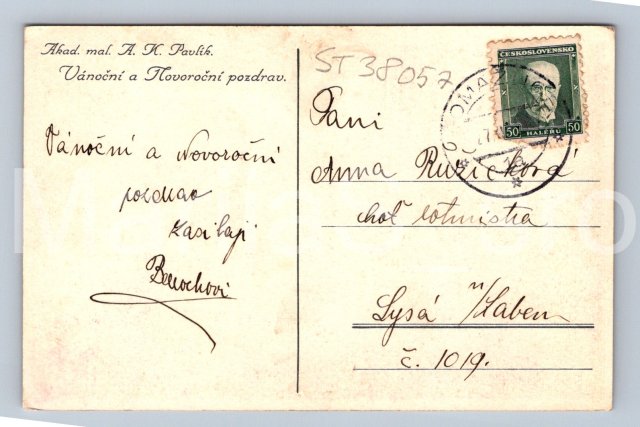 Akad. mal. A. K. Pavlík.
Vánoční a Novoroční pozdrav.
Vánoční a Novoroční
pozdrav
zasílají
ST38057
ČESKOSLOVENSKO
50 HALÉŘŮ 50
Paní
Anna Růžičková
choť rotmistra
Lysá n/Labem
č. 1019.